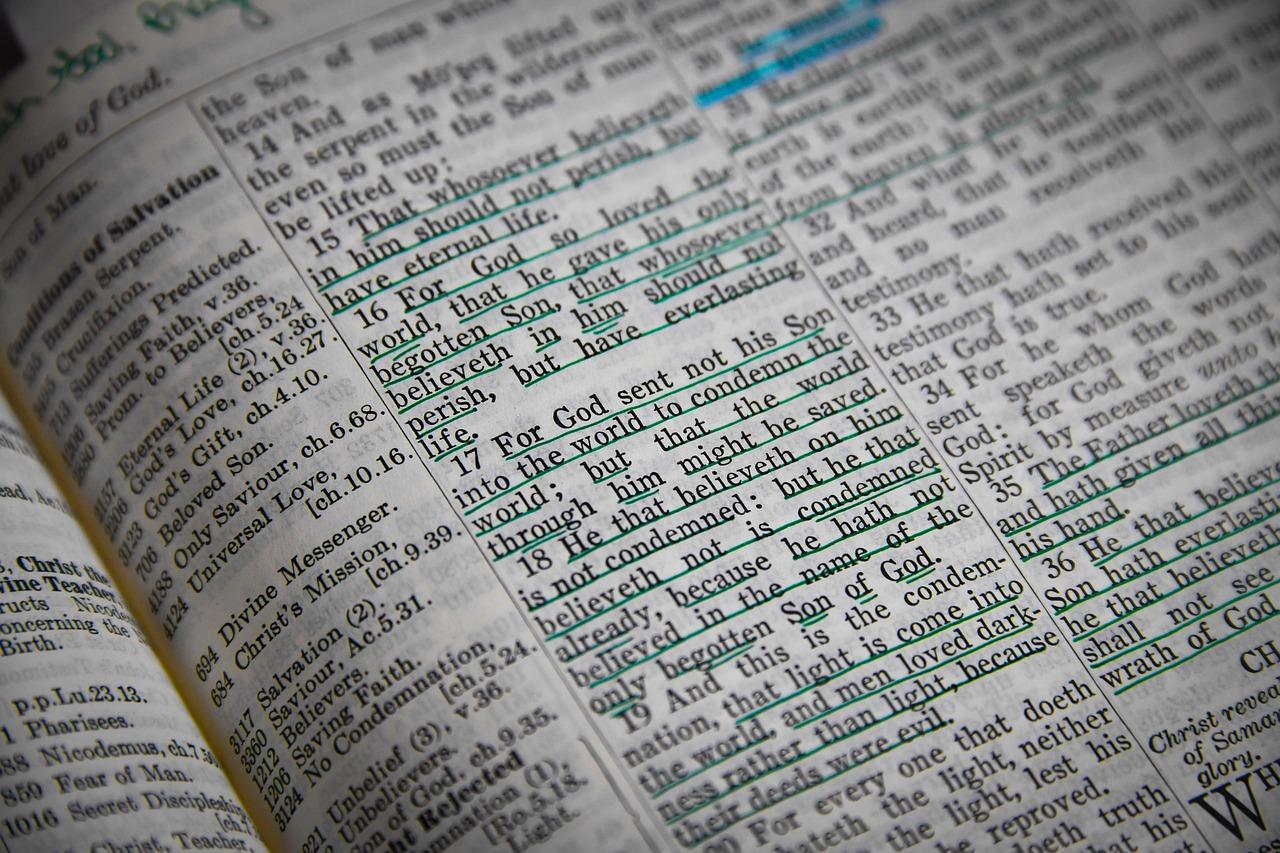 love of God.
Son of Man.
Conditions of Salvation
Brazen Serpent.
Crucifixion.
Sufferings Predicted.
Saving Faith, v.36.
Prom. to Believers,
[ch.5.24
Eternal Life (2), v.36.
God's Love, ch.16.27.
God's Gift, ch.4.10.
Beloved Son.
Only Saviour, ch.6.68.
Universal Love,
[ch.10.16.
694 Divine Messenger.
684 Christ's Mission,
[ch.9.39.
3117 Salvation (2),
3360 Saviour, Ac.5.31.
1212 Believers.
1206 Saving Faith.
3124 No Condemnation,
[ch.5.24.
Unbelief (3), v.36.
Unbelievers.
Son of God, ch.9.35.
Rejected
(1),
[Ro.5.18.
Light.
Christ the
Teacher
Birth.
p.p.Lu.23.13.
1 Pharisees.
Nicodemus, ch.7.50
859 Fear of Man.
1016 Secret Discipleship
Christ, Teacher,
the Son of man
heaven.
14 And as Mo'ses lifted up
the serpent in the wilderness,
even so must the Son of man
be lifted up:
15 That whosoever believeth
in him should not perish, but
have eternal life.
16 For God so loved the
world, that he gave his only
begotten Son, that whosoever
believeth in him should not
perish, but have everlasting
life.
17 For God sent not his Son
into the world to condemn the
world; but that the world
through him might be saved.
18 He that believeth on him
is not condemned: but he that
believeth not is condemned
already, because he hath not
believed in the name of the
only begotten Son of God.
19 And this is the condem-
nation, that light is come into
the world, and men loved dark-
ness rather than light, because
their deeds were evil.
20 For every one that doeth
hateth the light, neither
the light, lest his
reproved.
doeth truth
that his
30
31 He that cometh
is above all: he that is of
earth is earthly, and speaketh
of the earth: he that cometh
from heaven is above all.
32 And what he hath seen
and heard, that he testifieth;
and no man receiveth his
testimony.
33 He that hath received his
testimony hath set to his seal
that God is true.
34 For he whom God hath
sent speaketh the words
God: for God giveth not
Spirit by measure unto
35 The Father loveth
and hath given all
his hand.
36 He that
Son hath
he that believeth
shall not see
wrath of God
Christ
of
glory.